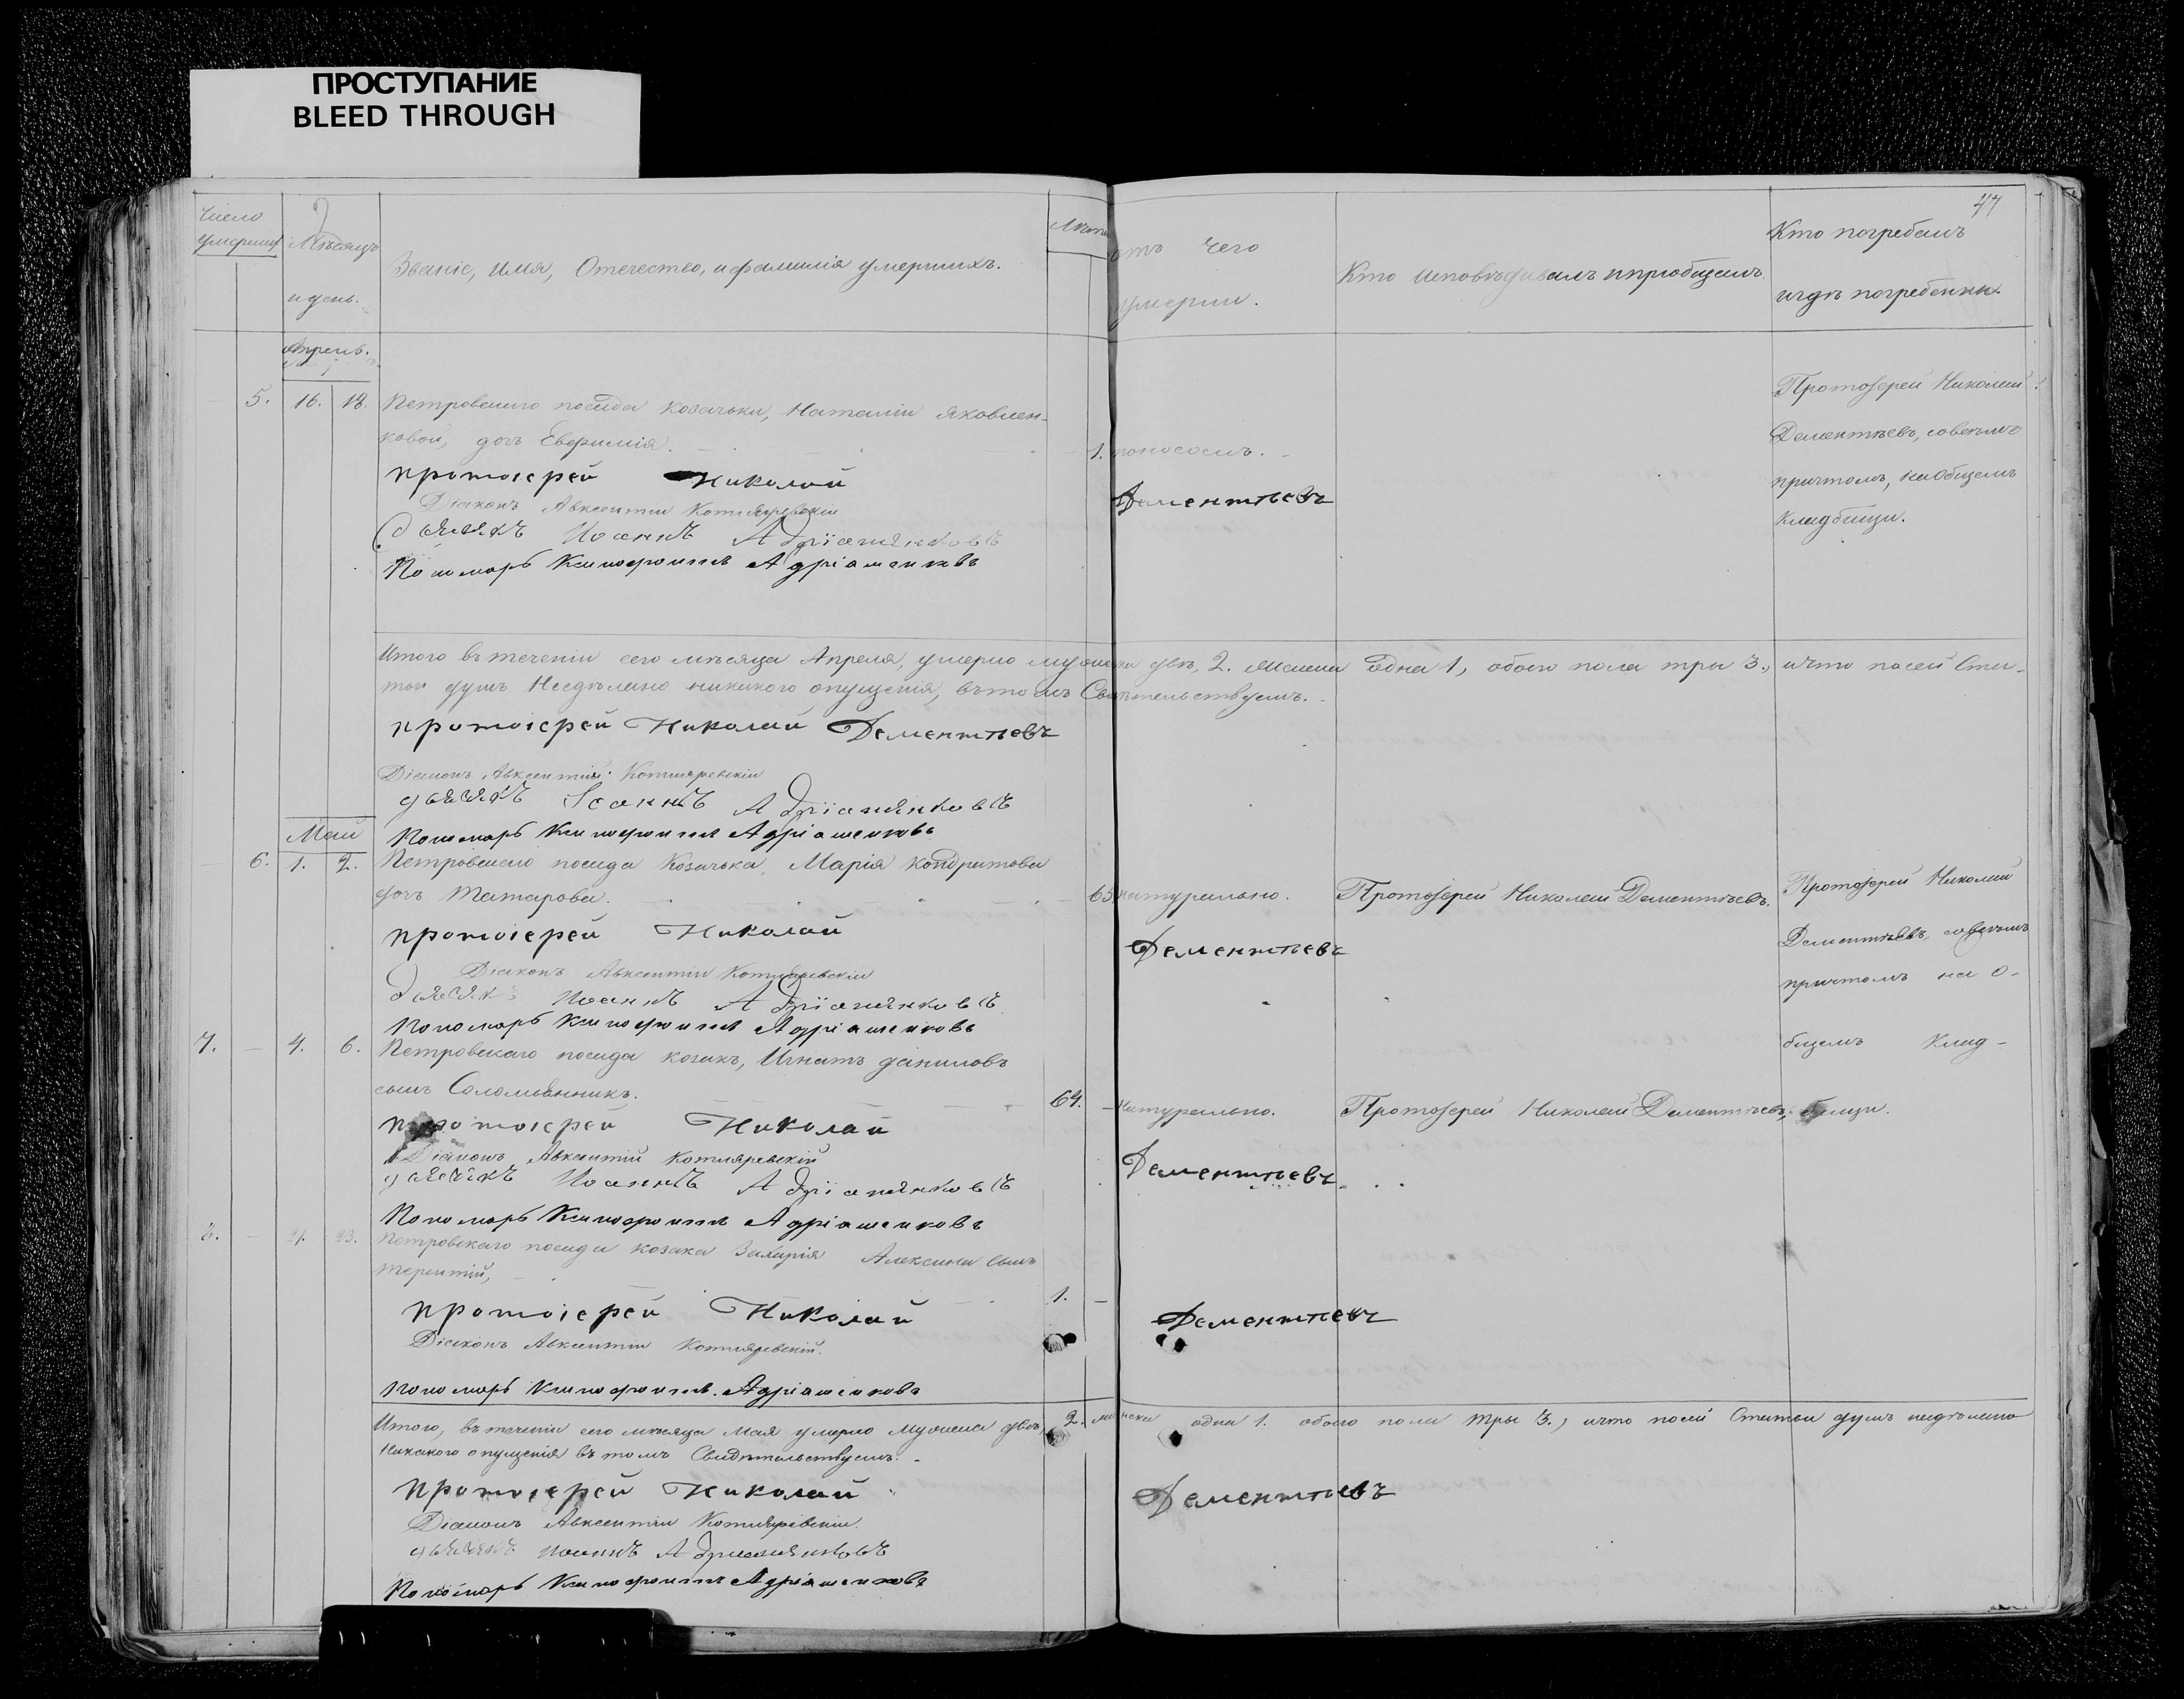 ПРОСТУПАНИЕ
BLEED THROUGH
77
Число умершихъ
Мѣсяцъ и день.
Званіе, имя, Отечество, и фамилія умершихъ.
Лѣта
отъ чего умерли.
Кто исповѣдывалъ и пріобщалъ.
Кто погребалъ и гдѣ погребенны.
Апрель.
5. 16. 18. Петровскаго посада козачьки, Наталіи Яковлен-
ковой, дочь Евфимія. 1. поносомъ.
Протоіерей Николай
Дементьевъ, совсемъ
причтомъ, на Общемъ
кладбищи.
протоіерей Николай Дементьевъ
Діаконъ Авксентій Котляревскій
дьячокъ Иоаннъ Адріашенковъ
Пономарь Ксинофонтъ Адріашенковъ
Итого въ теченіи сего мѣсяца Апреля, умерло мужеска двѣ, 2. женска одна 1, обоего пола три 3., и что по сей Ста-
тьи душъ несдѣлано никакого опущенія, въ томъ Свидѣтельствуемъ.
протоіерей Николай Дементьевъ
Діаконъ Авксентій Котляревскій
дьячокъ Іоаннъ Адріашенковъ
Пономарь Ксинофонтъ Адріашенковъ
Май
6. 1. 2. Петровскаго посада Козачька, Марія Кондратова
дочь Татарова. 65 натурально. Протоіерей Николай Дементьевъ.
Протоіерей Николай
Дементьевъ, совсемъ
причтомъ на о-
бщемъ клад-
бищи.
протоіерей Николай Дементьевъ
Діаконъ Авксентій Котляревскій
дьячокъ Иоаннъ Адріашенковъ
Пономарь Ксинофонтъ Адріашенковъ
7. 4. 6. Петровскаго посада козакъ, Игнатъ Даниловъ
сынъ Соломьянникъ. 64. натурально. Протоіерей Николай Дементьевъ,
протоіерей Николай Дементьевъ
Діаконъ Авксентій Котляревскій
дьячокъ Иоаннъ Адріашенковъ
Пономарь Ксинофонтъ Адріашенковъ
8. 21. 23. Петровскаго посада козака Захарія Алексина сынъ
терентій, 1.
протоіерей Николай Дементьевъ
Діаконъ Авксентій Котляревскій.
Пономарь Ксинофонтъ Адріашенковъ
Итого, въ теченіи сего мѣсяца Мая умерло Мужеска двѣ, 2. женска одна 1. обоего пола три 3., и что посей Статьи душъ несдѣлано
никакого опущенія въ томъ Свидѣтельствуемъ.
протоіерей Николай Дементьевъ
Діаконъ Авксентій Котляревскій.
дьячокъ Иоаннъ Адриашенковъ
Пономарь Ксинофонтъ Адріашенковъ